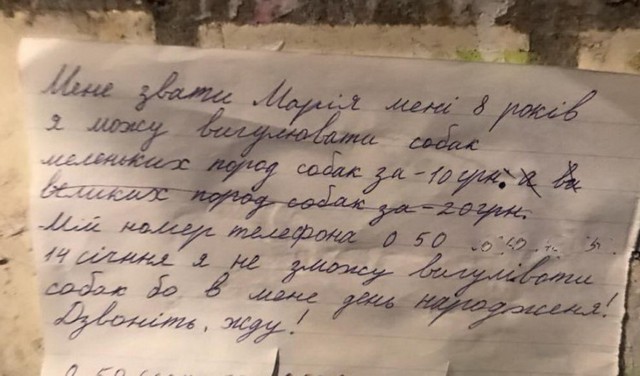 Мене звати Марія мені 8 років
я можу вигулювати собак
меленьких пород собак за -10 грн. а ва
великих пород собак за -20 грн.
Мій номер телефона 0 50
14 січння я не зможу вигулівати
собак бо в мене день народженя!
Дзвоніть, жду!
0 50